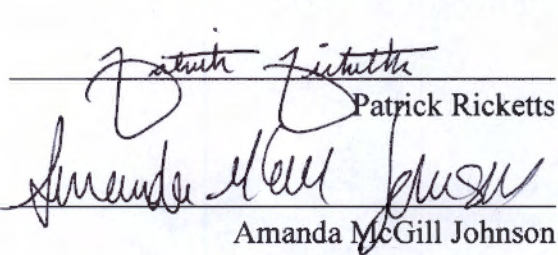 Patrick Ricketts
Patrick Ricketts
Amanda McGill Johnson
Amanda McGill Johnson